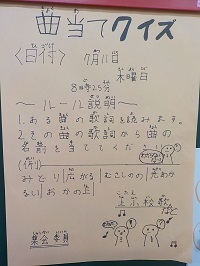 曲当てクイズ
〈日付〉 7月11日
木曜日
8時25分
〜ルール説明〜
1.ある曲の歌詞を読みます。
2.その曲の歌詞から曲の
名前を当ててください
〈例〉
みどり広がる むさしのの 光あか
るい おかの上
校歌
など
集会委員